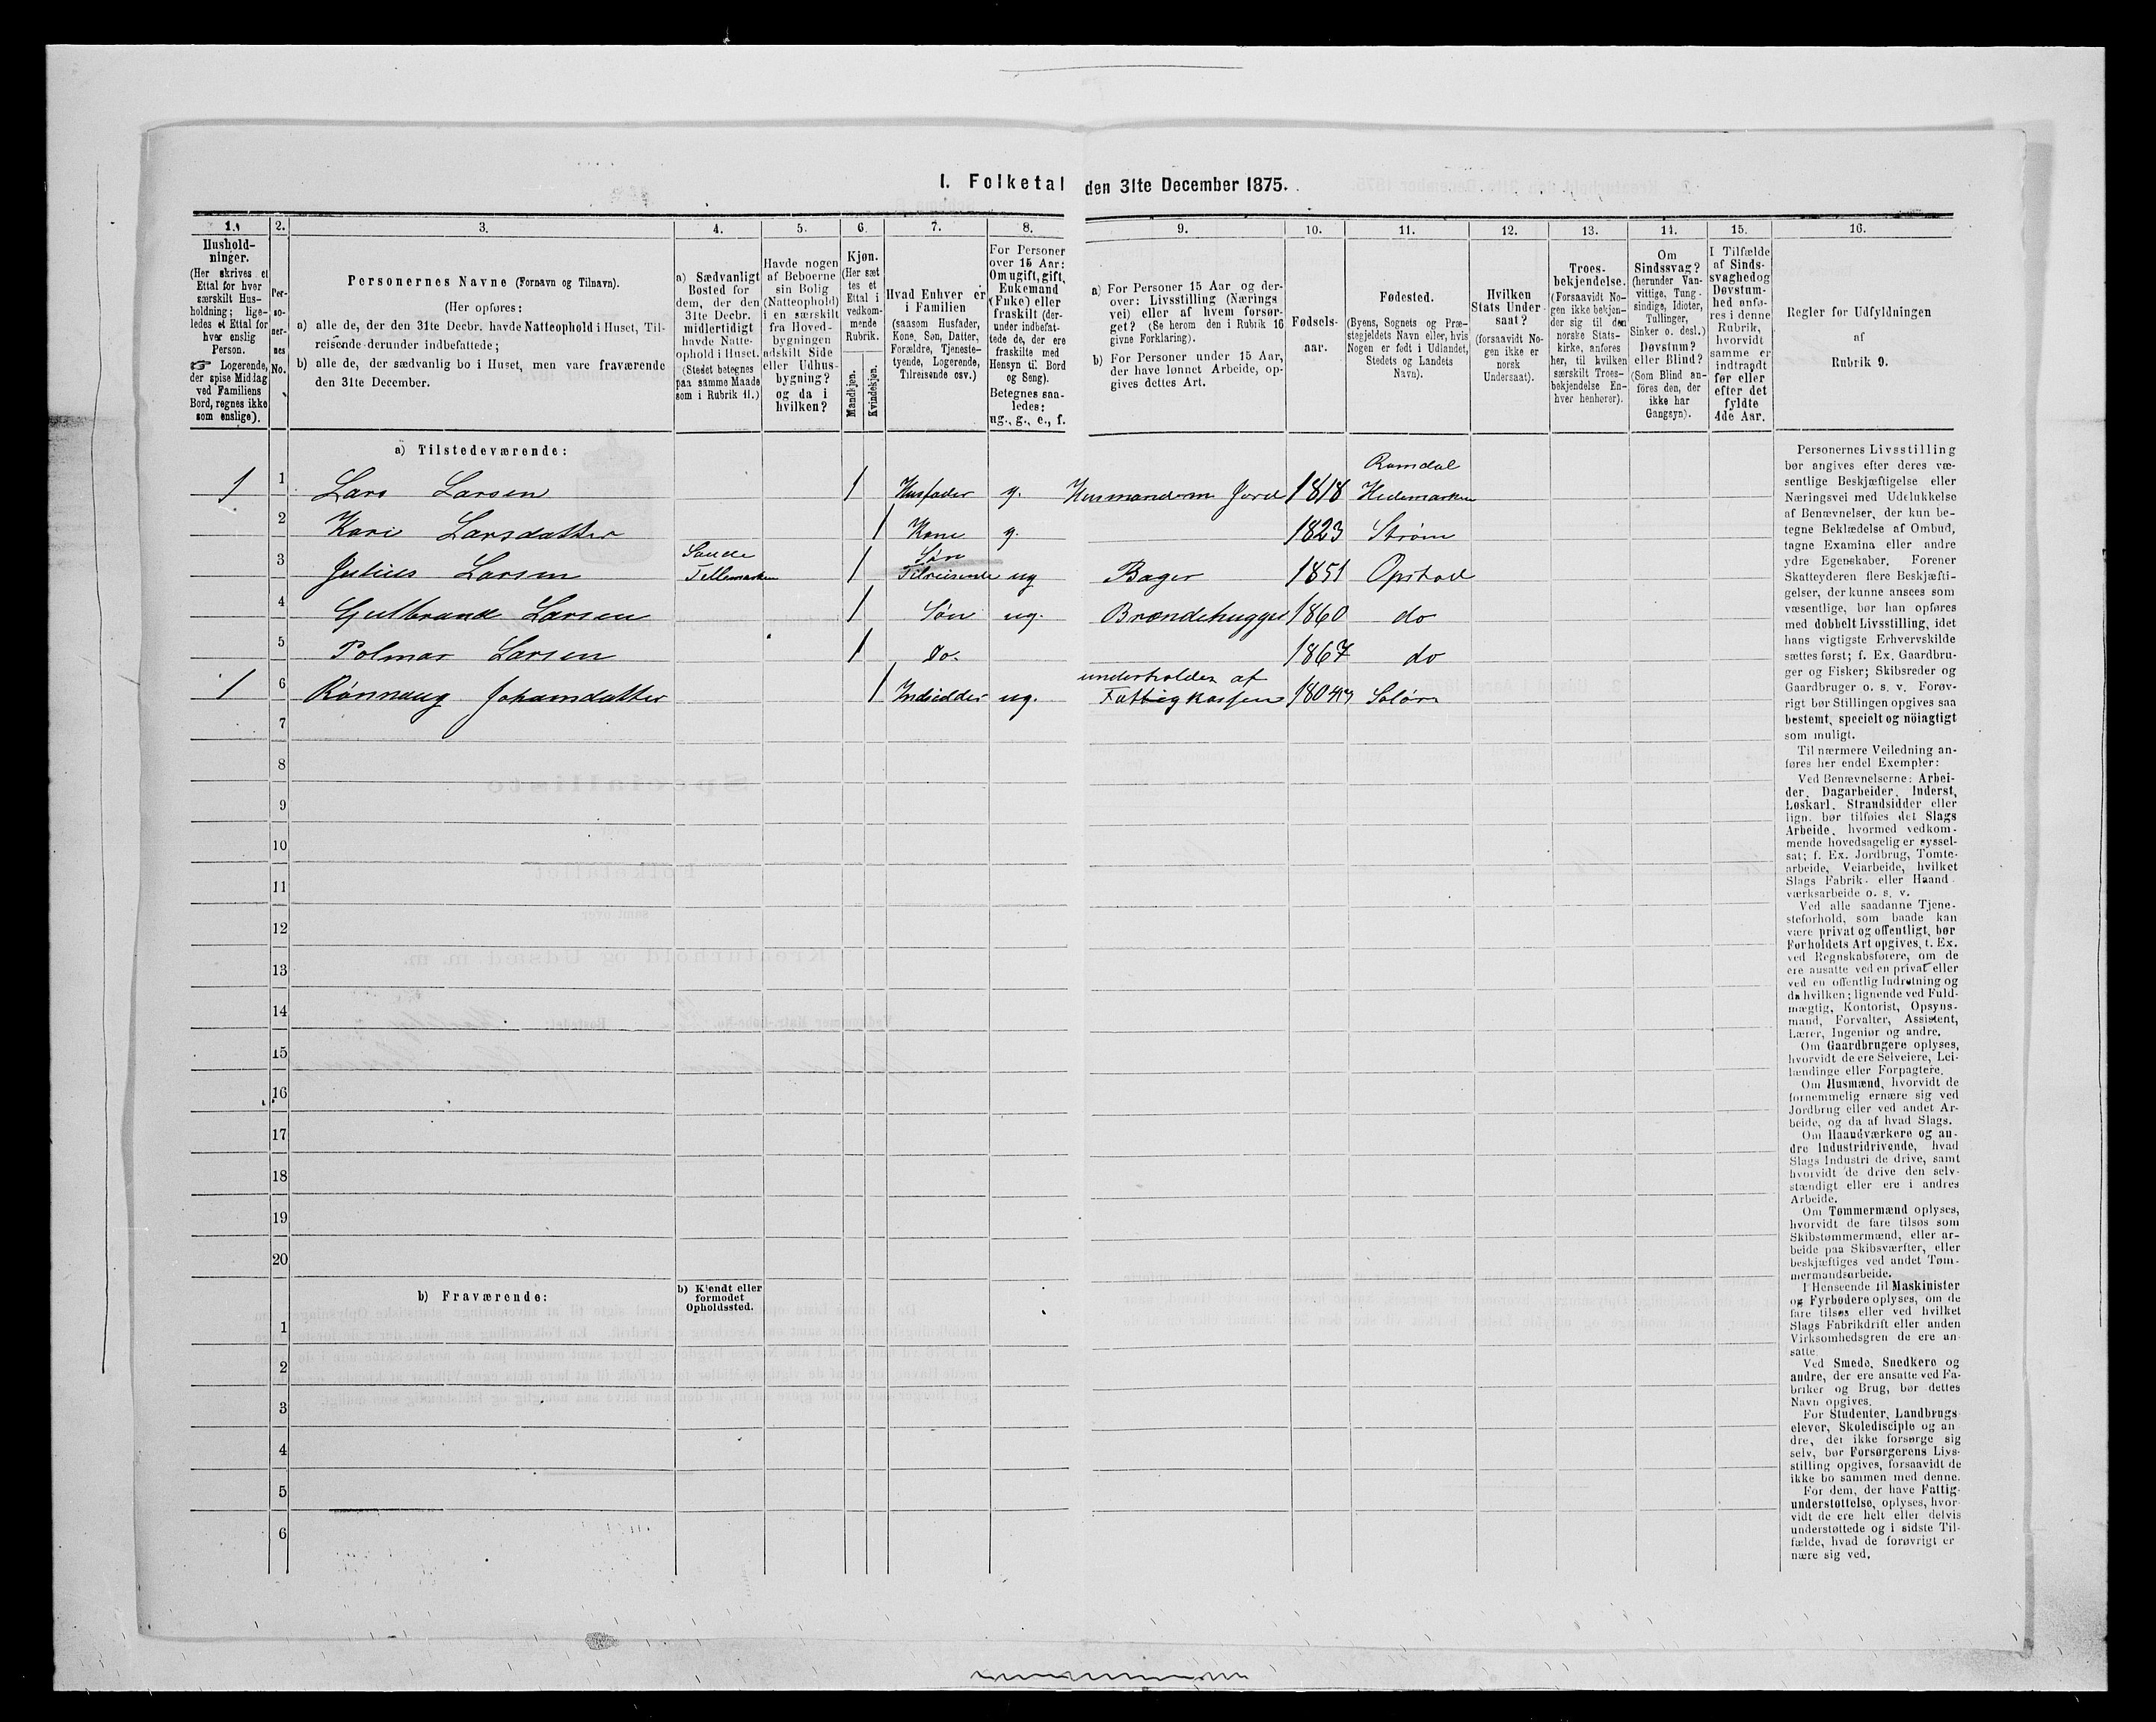 I. Folketal den 31te December 1875.
1. 2. 3. 4. 5. 6. 7. 8. 9. 10. 11. 12. 13. 14. 15. 16.
Hushold-
ninger.
(Her skrives et
Ettal for hver
særskilt Hus-
holdning; lige-
ledes et Ettal for
hver enslig
Person.
☞ Logerende,
der spise Middag
ved Familiens
Bord, regnes ikke
som enslige).
Per-
so-
ner-
nes
No.
Personernes Navne (Fornavn og Tilnavn).
(Her opføres:
a) alle de, der den 31te Decbr. havde Natteophold i Huset, Til-
reisende derunder indbefattede;
b) alle de, der sædvanlig bo i Huset, men vare fraværende
den 31te December.
a) Sædvanligt
Bosted for
dem, der den
31te Decbr.
midlertidigt
havde Natte-
ophold i Huset.
(Stedet betegnes
paa samme Maade
som i Rubrik 11.)
Havde nogen
af Beboerne
sin Bolig
(Natteophold)
i en særskilt
fra Hoved-
bygningen
adskilt Side
eller Udhus-
bygning?
og da i
hvilken?
Kjøn.
(Her sæt
tes et
Ettal i
vedkom-
mende
Rubrik.
Mandkjøn.
Kvindekjøn.
Hvad Enhver er
i Familien
(saasom Husfader,
Kone, Søn, Datter,
Forældre, Tjeneste-
tyende, Logerende,
Tilreisende osv.)
For Personer
over 15 Aar:
Om ugift, gift,
Enkemand
(Enke) eller
fraskilt (der-
under indbefat-
tede de, der ere
fraskilte med
Hensyn til Bord
og Seng).
Betegnes saa-
ledes:
ug., g., e., f.
a) For Personer 15 Aar og der-
over: Livsstilling (Nærings
vei) eller af hvem forsør-
get? (Se herom den i Rubrik 16
givne Forklaring).
b) For Personer under 15 Aar,
der have lønnet Arbeide, op-
gives dettes Art.
Fødsels-
aar.
Fødested.
(Byens, Sognets og Præ-
stegjeldets Navn eller, hvis
Nogen er født i Udlandet,
Stedets og Landets
Navn).
Hvilken
Stats Under
saat?
(forsaavidt No-
gen ikke er
norsk
Undersaat).
Troes-
bekjendelse.
(Forsaavidt No-
gen ikke bekjen-
der sig til den
norske Stats-
kirke, anføres
her, til hvilken
særskilt Troes-
bekjendelse En-
hver henhører).
Om
Sindssvag?
(herunder Van-
vittige, Tung-
sindige, Idioter,
Tullinger,
Sinker o. desl.)
Døvstum?
eller Blind?
(Som Blind an-
föres den, der
ikke har
Gangsyn).
I Tilfælde
af Sinds-
svaghed og
Døvstum-
hed anfø-
res i denne
Rubrik,
hvorvidt
samme er
indtraadt
før eller
efter det
fyldte
4de Aar.
Regler for Udfyldningen
af
Rubrik 9.
a) Tilstedeværende:
Romdal
1 1 Lars Larsen 1 Husfader g. Husmand m Jord 1818 Hedemarken
2 Kari Larsdatter 1 Kone g. 1823 Strøm
Sande Søn
3 Julius Larsen Tellemarken 1 Tilreisende ug Bager 1851 Opstad
4 Gulbrand Larsen 1 Søn ug. Brændehugger 1860 do
5 Polmar Larsen 1 do. 1867 do
underholdes af
1 6 Rønnaug Johansdatter 1 Indsidder ug. Fattigkassen 1804 Solør
7
8
9
10
11
12
13
14
15
16
17
18
19
20
b) Fraværende:
b) Kjendt eller
formodet
Opholdssted.
1
2
3
4
5
6
Personernes Livsstilling
bør angives efter deres væ-
sentlige Beskjæftigelse eller
Næringsvei med Udelukkelse
af Benævnelser, der kun be-
tegne Beklædelse af Ombud,
tagne Examina eller andre
ydre Egenskaber. Forener
Skatteyderen flere Beskjæfti-
gelser, der kunne ansees som
væsentlige, bør han opføres
med dobbelt Livsstilling, idet
hans vigtigste Erhvervskilde
sættes først; f. Ex. Gaardbru-
ger og Fisker; Skibsreder og
Gaardbruger o. s. v. Forøv-
rigt bør Stillingen opgives saa
bestemt, specielt og nöiagtigt
som muligt.
Til nærmere Veiledning an-
føres her endel Exempler:
Ved Benævnelserne: Arbei-
der, Dagarbeider, Inderst,
Løskarl, Strandsidder eller
lign. bør tilføies det Slags
Arbeide, hvormed vedkom-
mende hovedsagelig er syssel-
sat; f. Ex. Jordbrug, Tomte-
arbeide, Veiarbeide, hvilket
Slags Fabrik- eller Haand-
værksarbeide o. s. v.
Ved alle saadanne Tjene-
steforhold, som baade kan
være privat og offentligt, bør
Forholdets Art opgives, f. Ex.
ved Regnskabsførere, om de
ere ansatte ved en privat eller
ved en offentlig Indretning og
da hvilken; lignende ved Fuld-
mægtig, Kontorist, Opsyns-
mand, Forvalter, Assistent,
Lærer, Ingeniør og andre.
Om Gaardbrugere oplyses,
hvorvidt de ere Selveiere, Lei-
lændinge eller Forpagtere.
Om Husmænd, hvorvidt de
fornemmelig ernære sig ved
Jordbrug eller ved andet Ar-
beide, og da af hvad Slags.
Om Haandværkere og an-
dre Industridrivende, hvad
Slags Industri de drive, samt
hvorvidt de drive den selv-
stændigt eller ere i andres
Arbeide.
Om Tømmermænd oplyses,
hvorvidt de fare tilsøs som
Skibstømmermænd, eller ar-
beide paa Skibsværfter, eller
beskjæftiges ved andet Tøm-
mermandsarbeide.
I Henseende til Maskinister
og Fyrbødere oplyses, om de
fare tilsøs eller ved hvilket
Slags Fabrikdrift eller anden
Virksomhedsgren de ere an-
satte.
Ved Smede, Snedkere og
andre, der ere ansatte ved Fa-
briker og Brug, bør dettes
Navn opgives.
For Studenter, Landbrugs-
elever, Skoledisciple og an-
dre, der ikke forsørge sig
selv, bør Forsørgerens Livs-
stilling opgives, forsaavidt de
ikke bo sammen med denne.
For dem, der have Fattig-
understøttelse, oplyses, hvor-
vidt de ere helt eller delvis
understøttede og i sidste Til-
fælde, hvad de forøvrigt er
nære sig ved.